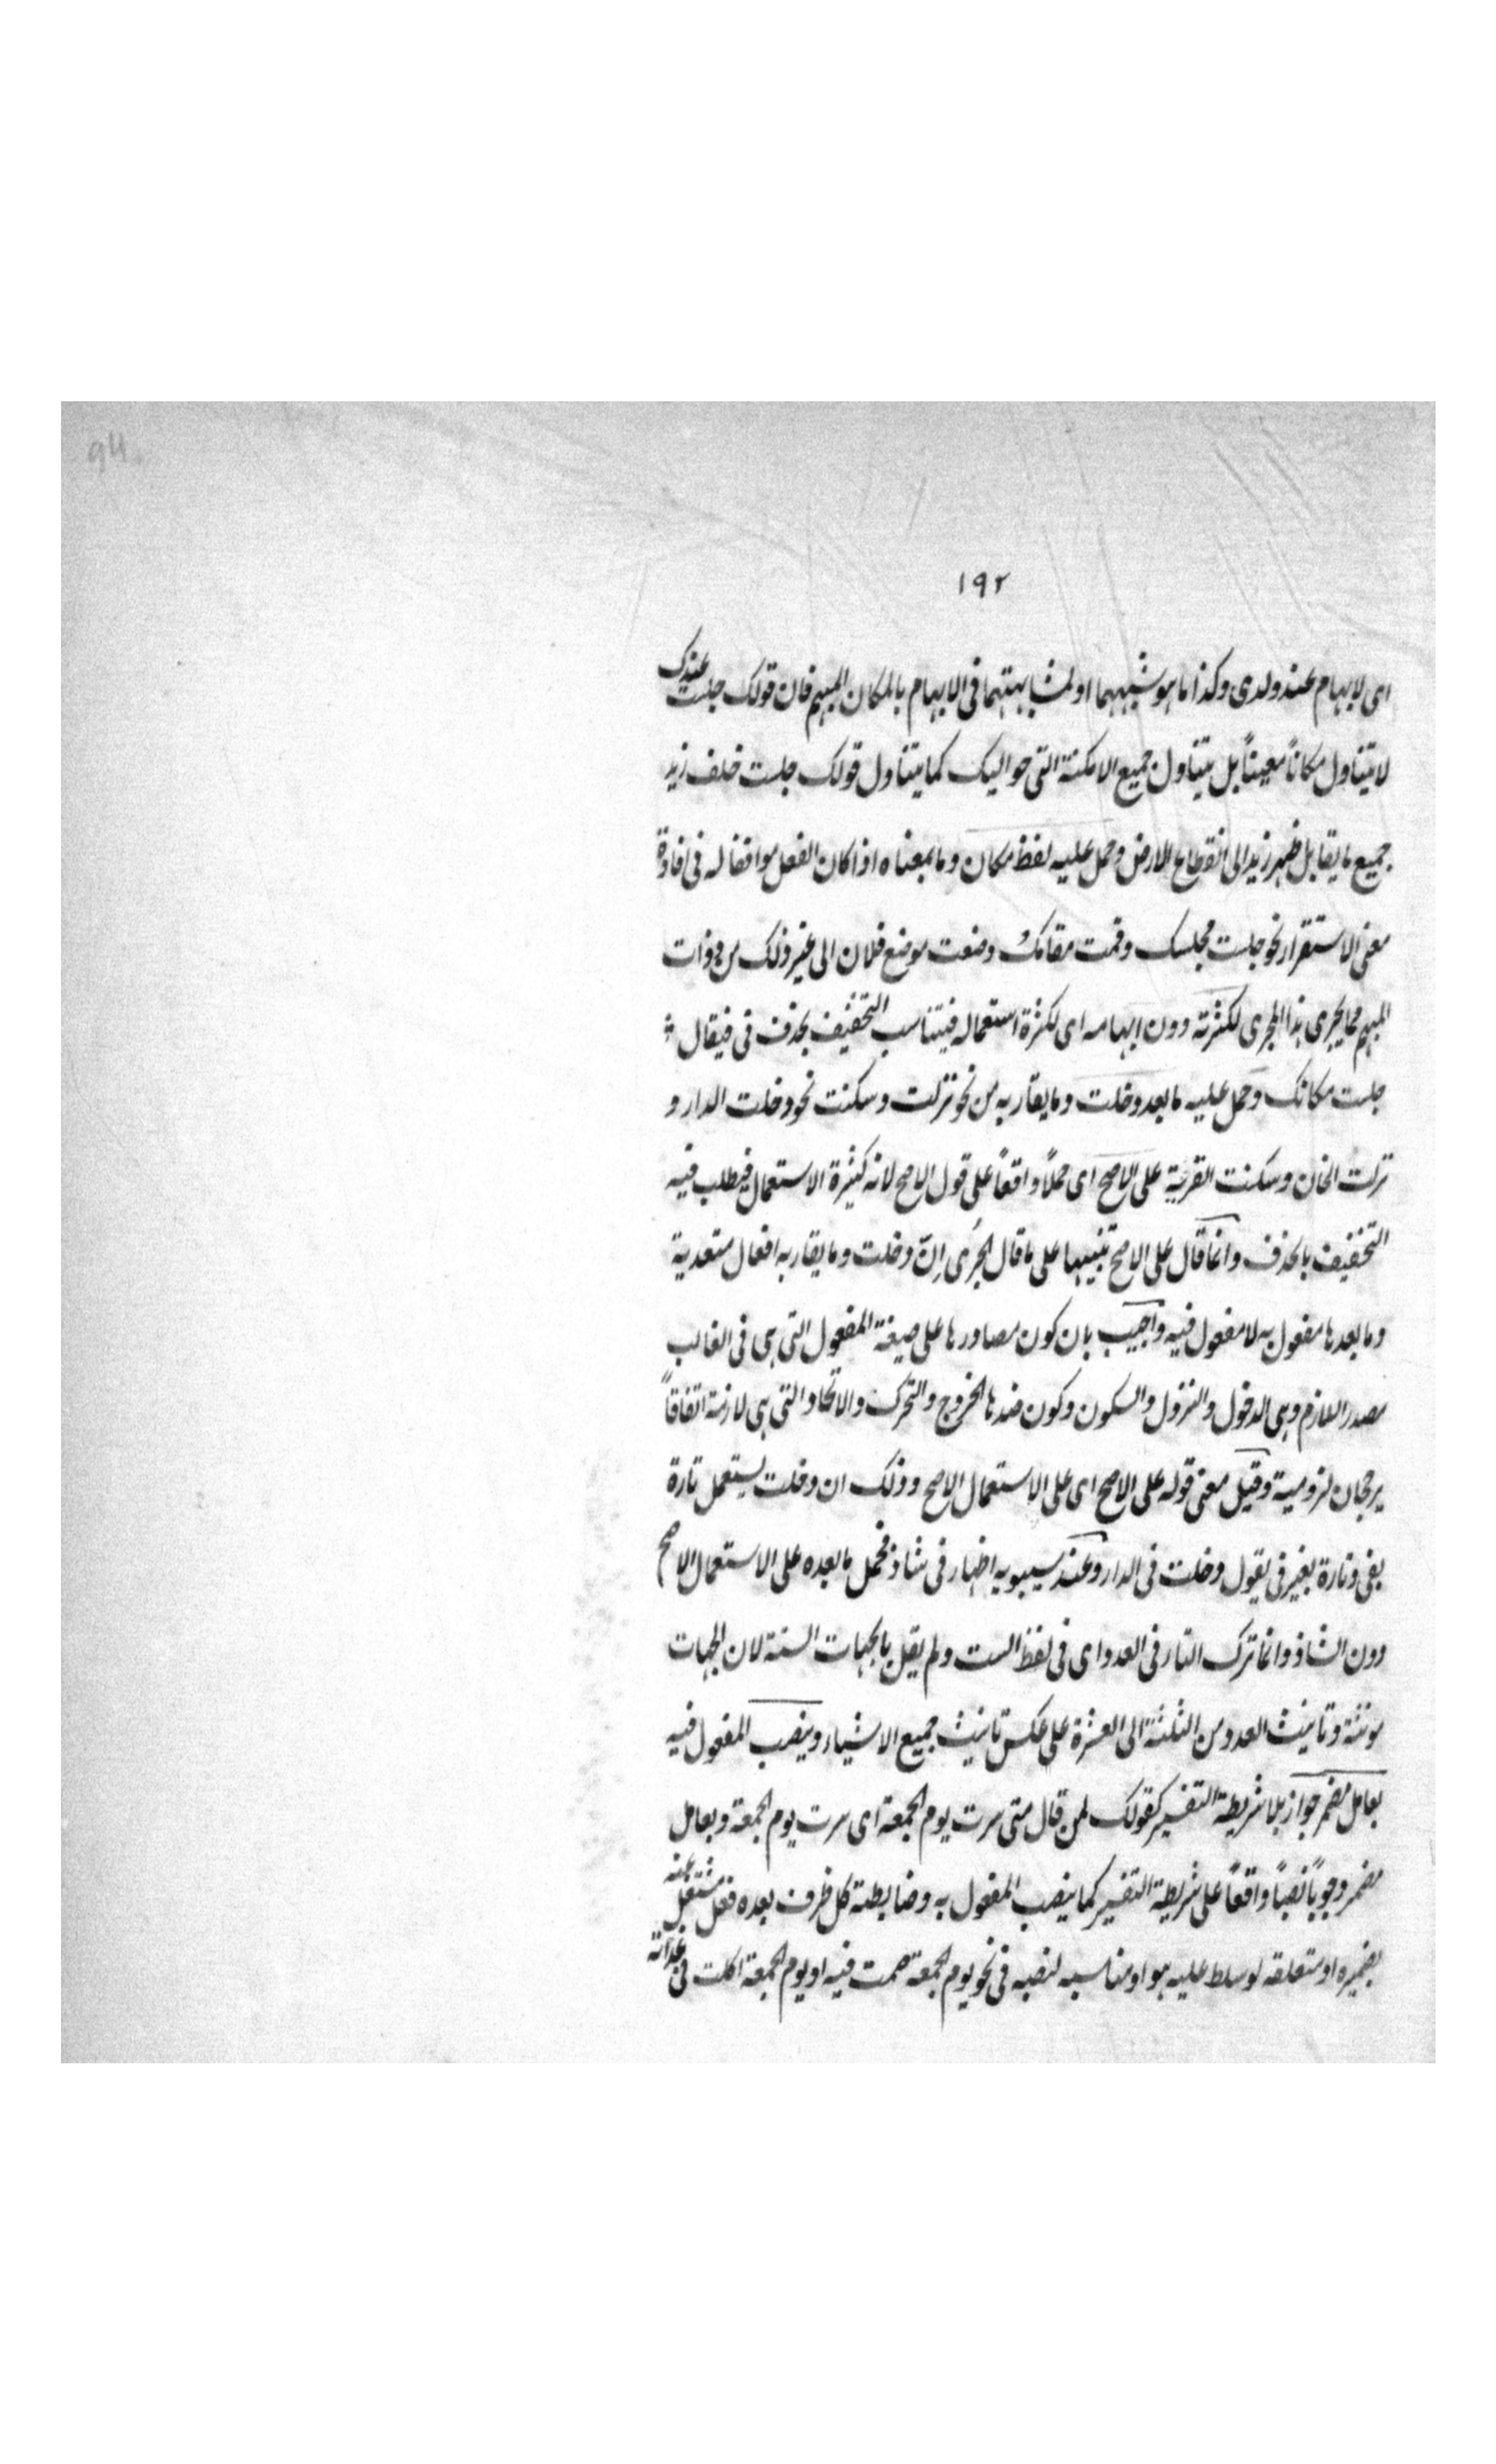 94
١٩٢
اى لابهام عند ولدى وكذا ما هو شبههما او لمشابهتهما فى الابهام بالمكان المبهم فان قولك جلست عندك
لا يتناول مكاناً معيناً بل يتناول جميع الامكنة التى حواليك كما يتناول قولك جلست خلف زيد
جميع ما يقابل ظهر زيد الى انقطاع الارض وحمل عليه لفظ مكان وما بمعناه اذا كان الفعل موافقا له فى افادة
معنى الاستقرار نحو جلست مجلسك وقمت مقامك وضعت موضع فلان الى غير ذلك من ذوات
المبهم مما يجرى هذا المجرى لكثرته دون ابهامه اى لكثرة استعماله فيتناسب التخفيف بحذف فى فيقال
جلست مكانك وحمل عليه ما بعد دخلت وما يقاربه من نحو نزلت وسكنت نحو دخلت الدار و
نزلت الخان وسكنت القرية على الاصح اى حملاً واقعاً على قول الاصح لانه كثيرة الاستعمال فيطلب فيه
التخفيف بالحذف وانما قال على الاصح تنبيها على ما قال الجرمى ان دخلت وما يقاربه افعال متعدية
وما بعدها مفعول به لا مفعول فيه واجيب بان كون مصادرها على صيغة المفعول التى هى فى الغالب
مصدر اللازم وهى الدخول والنزول والسكون وكون ضدها الخروج والتحرك والاتحاد التى هى لازمة اتفاقاً
يرجحان لزومية وقيل معنى قوله على الاصح اى على الاستعمال الاصح وذلك ان دخلت يستعمل تارة
بفى وتارة بغير فى يقول دخلت فى الدار وعند سيبويه اظهار فى شاذ فحمل ما بعده على الاستعمال الاصح
دون الشاذ وانما ترك التار فى العدد اى فى لفظ الست ولم يقل بالجهات الستة لان الجهات
مونثة وتانيث العدد من الثلثة الى العشرة على عكس تانيث جميع الاشياء وينصب المفعول فيه
بعامل مضمر جواز بلا شريطة التفسير كقولك لمن قال متى سرت يوم الجمعة اى سرت يوم الجمعة وبعامل
مضمر وجوباً نصباً واقعاً على شريطة التفسير كما ينصب المفعول به وضابطته كل ظرف بعده فعل مشتغل عنه
بضميره او متعلقه لو سلط عليه هو او مناسبه لنصبه فى نحو يوم الجمعة صمت فيه او يوم الجمعة اكلت فى غدائه